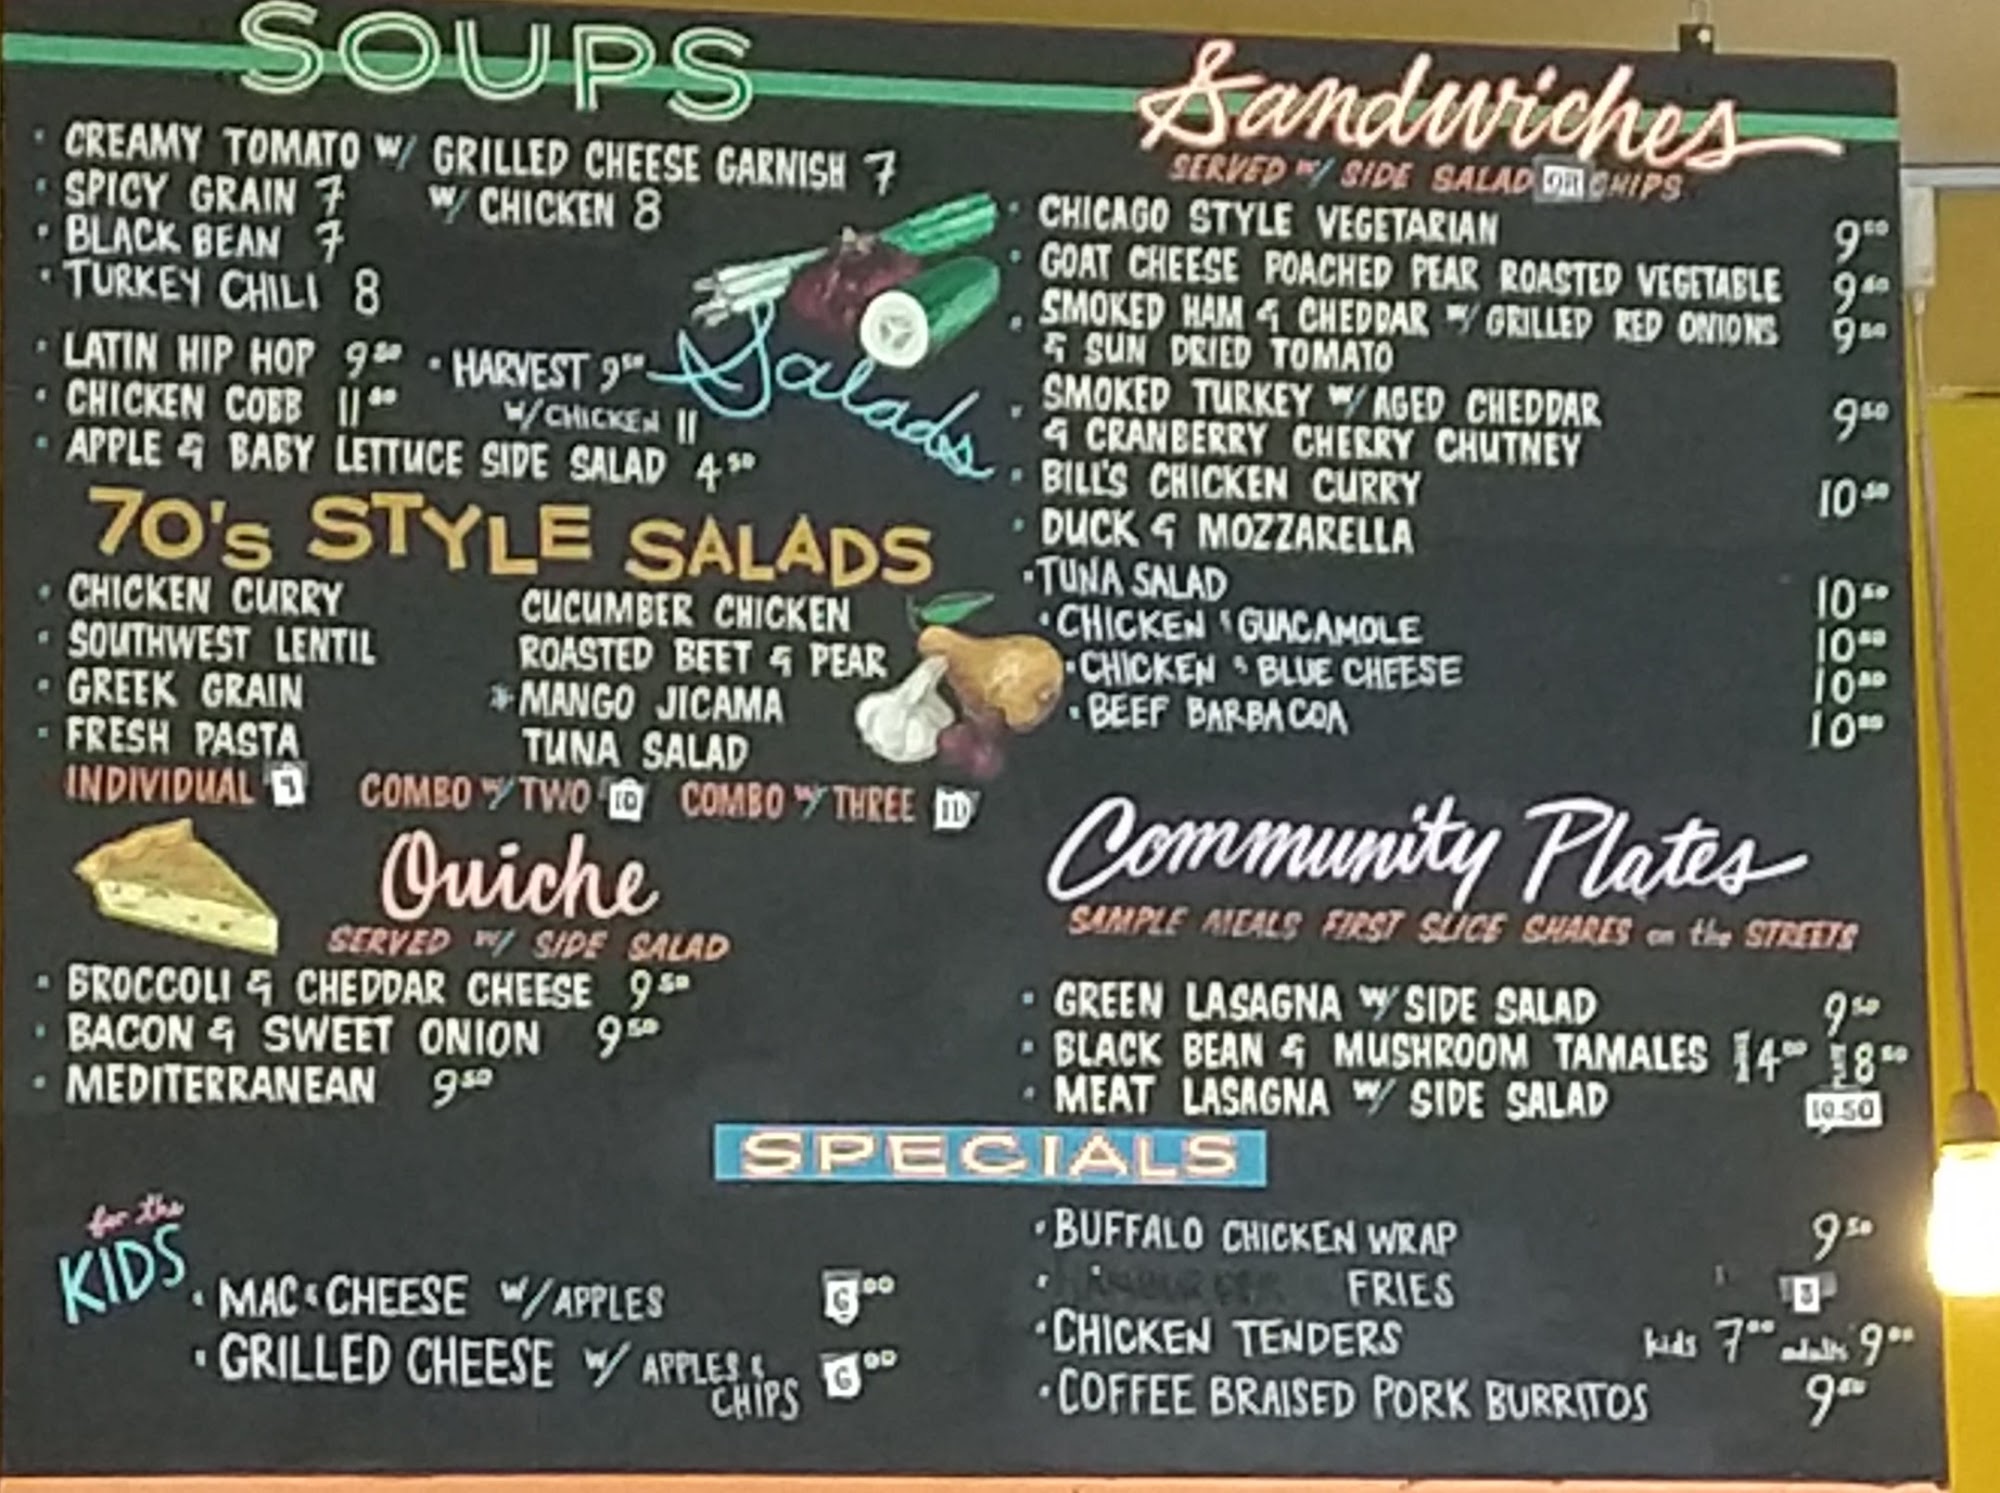 SOUPS
· CREAMY TOMATO W/ GRILLED CHEESE GARNISH 7
· SPICY GRAIN 7 W/ CHICKEN 8
· BLACK BEAN 7
· TURKEY CHILI 8
Salads
· LATIN HIP HOP 9⁵⁰ · HARVEST 9⁵⁰
· CHICKEN COBB 11⁵⁰ W/CHICKEN 11
· APPLE & BABY LETTUCE SIDE SALAD 4⁵⁰
70's STYLE SALADS
· CHICKEN CURRY CUCUMBER CHICKEN
· SOUTHWEST LENTIL ROASTED BEET & PEAR
· GREEK GRAIN * MANGO JICAMA
· FRESH PASTA TUNA SALAD
INDIVIDUAL COMBO W/ TWO 10 COMBO W/ THREE 11
Quiche
SERVED W/ SIDE SALAD
· BROCCOLI & CHEDDAR CHEESE 9⁵⁰
· BACON & SWEET ONION 9⁵⁰
· MEDITERRANEAN 9⁵⁰
Sandwiches
SERVED W/ SIDE SALAD OR CHIPS
· CHICAGO STYLE VEGETARIAN 9⁵⁰
· GOAT CHEESE POACHED PEAR ROASTED VEGETABLE 9⁵⁰
· SMOKED HAM & CHEDDAR W/ GRILLED RED ONIONS 9⁵⁰
& SUN DRIED TOMATO
· SMOKED TURKEY W/ AGED CHEDDAR 9⁵⁰
& CRANBERRY CHERRY CHUTNEY
· BILL'S CHICKEN CURRY 10⁵⁰
· DUCK & MOZZARELLA
· TUNA SALAD 10⁵⁰
· CHICKEN & GUACAMOLE 10⁵⁰
· CHICKEN & BLUE CHEESE 10⁵⁰
· BEEF BARBACOA 10⁵⁰
Community Plates
SAMPLE MEALS FIRST SLICE SHARES on the STREETS
· GREEN LASAGNA W/ SIDE SALAD 9⁵⁰
· BLACK BEAN & MUSHROOM TAMALES 4⁰⁰ 8⁵⁰
· MEAT LASAGNA W/ SIDE SALAD 10.50
SPECIALS
for the
KIDS
· MAC & CHEESE W/ APPLES 6⁰⁰
· GRILLED CHEESE W/ APPLES &
CHIPS 6⁰⁰
· BUFFALO CHICKEN WRAP 9⁵⁰
· FRIES 3
· CHICKEN TENDERS kids 7⁰⁰ adults 9⁰⁰
· COFFEE BRAISED PORK BURRITOS 9⁵⁰